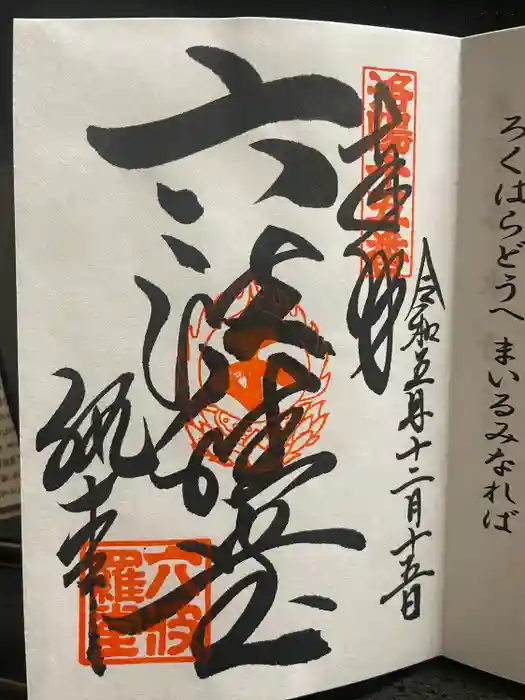 ろくはらどうへ まいるみなれば
洛陽十五番
奉拝
令和五年十二月十五日
六波羅堂
六波羅堂